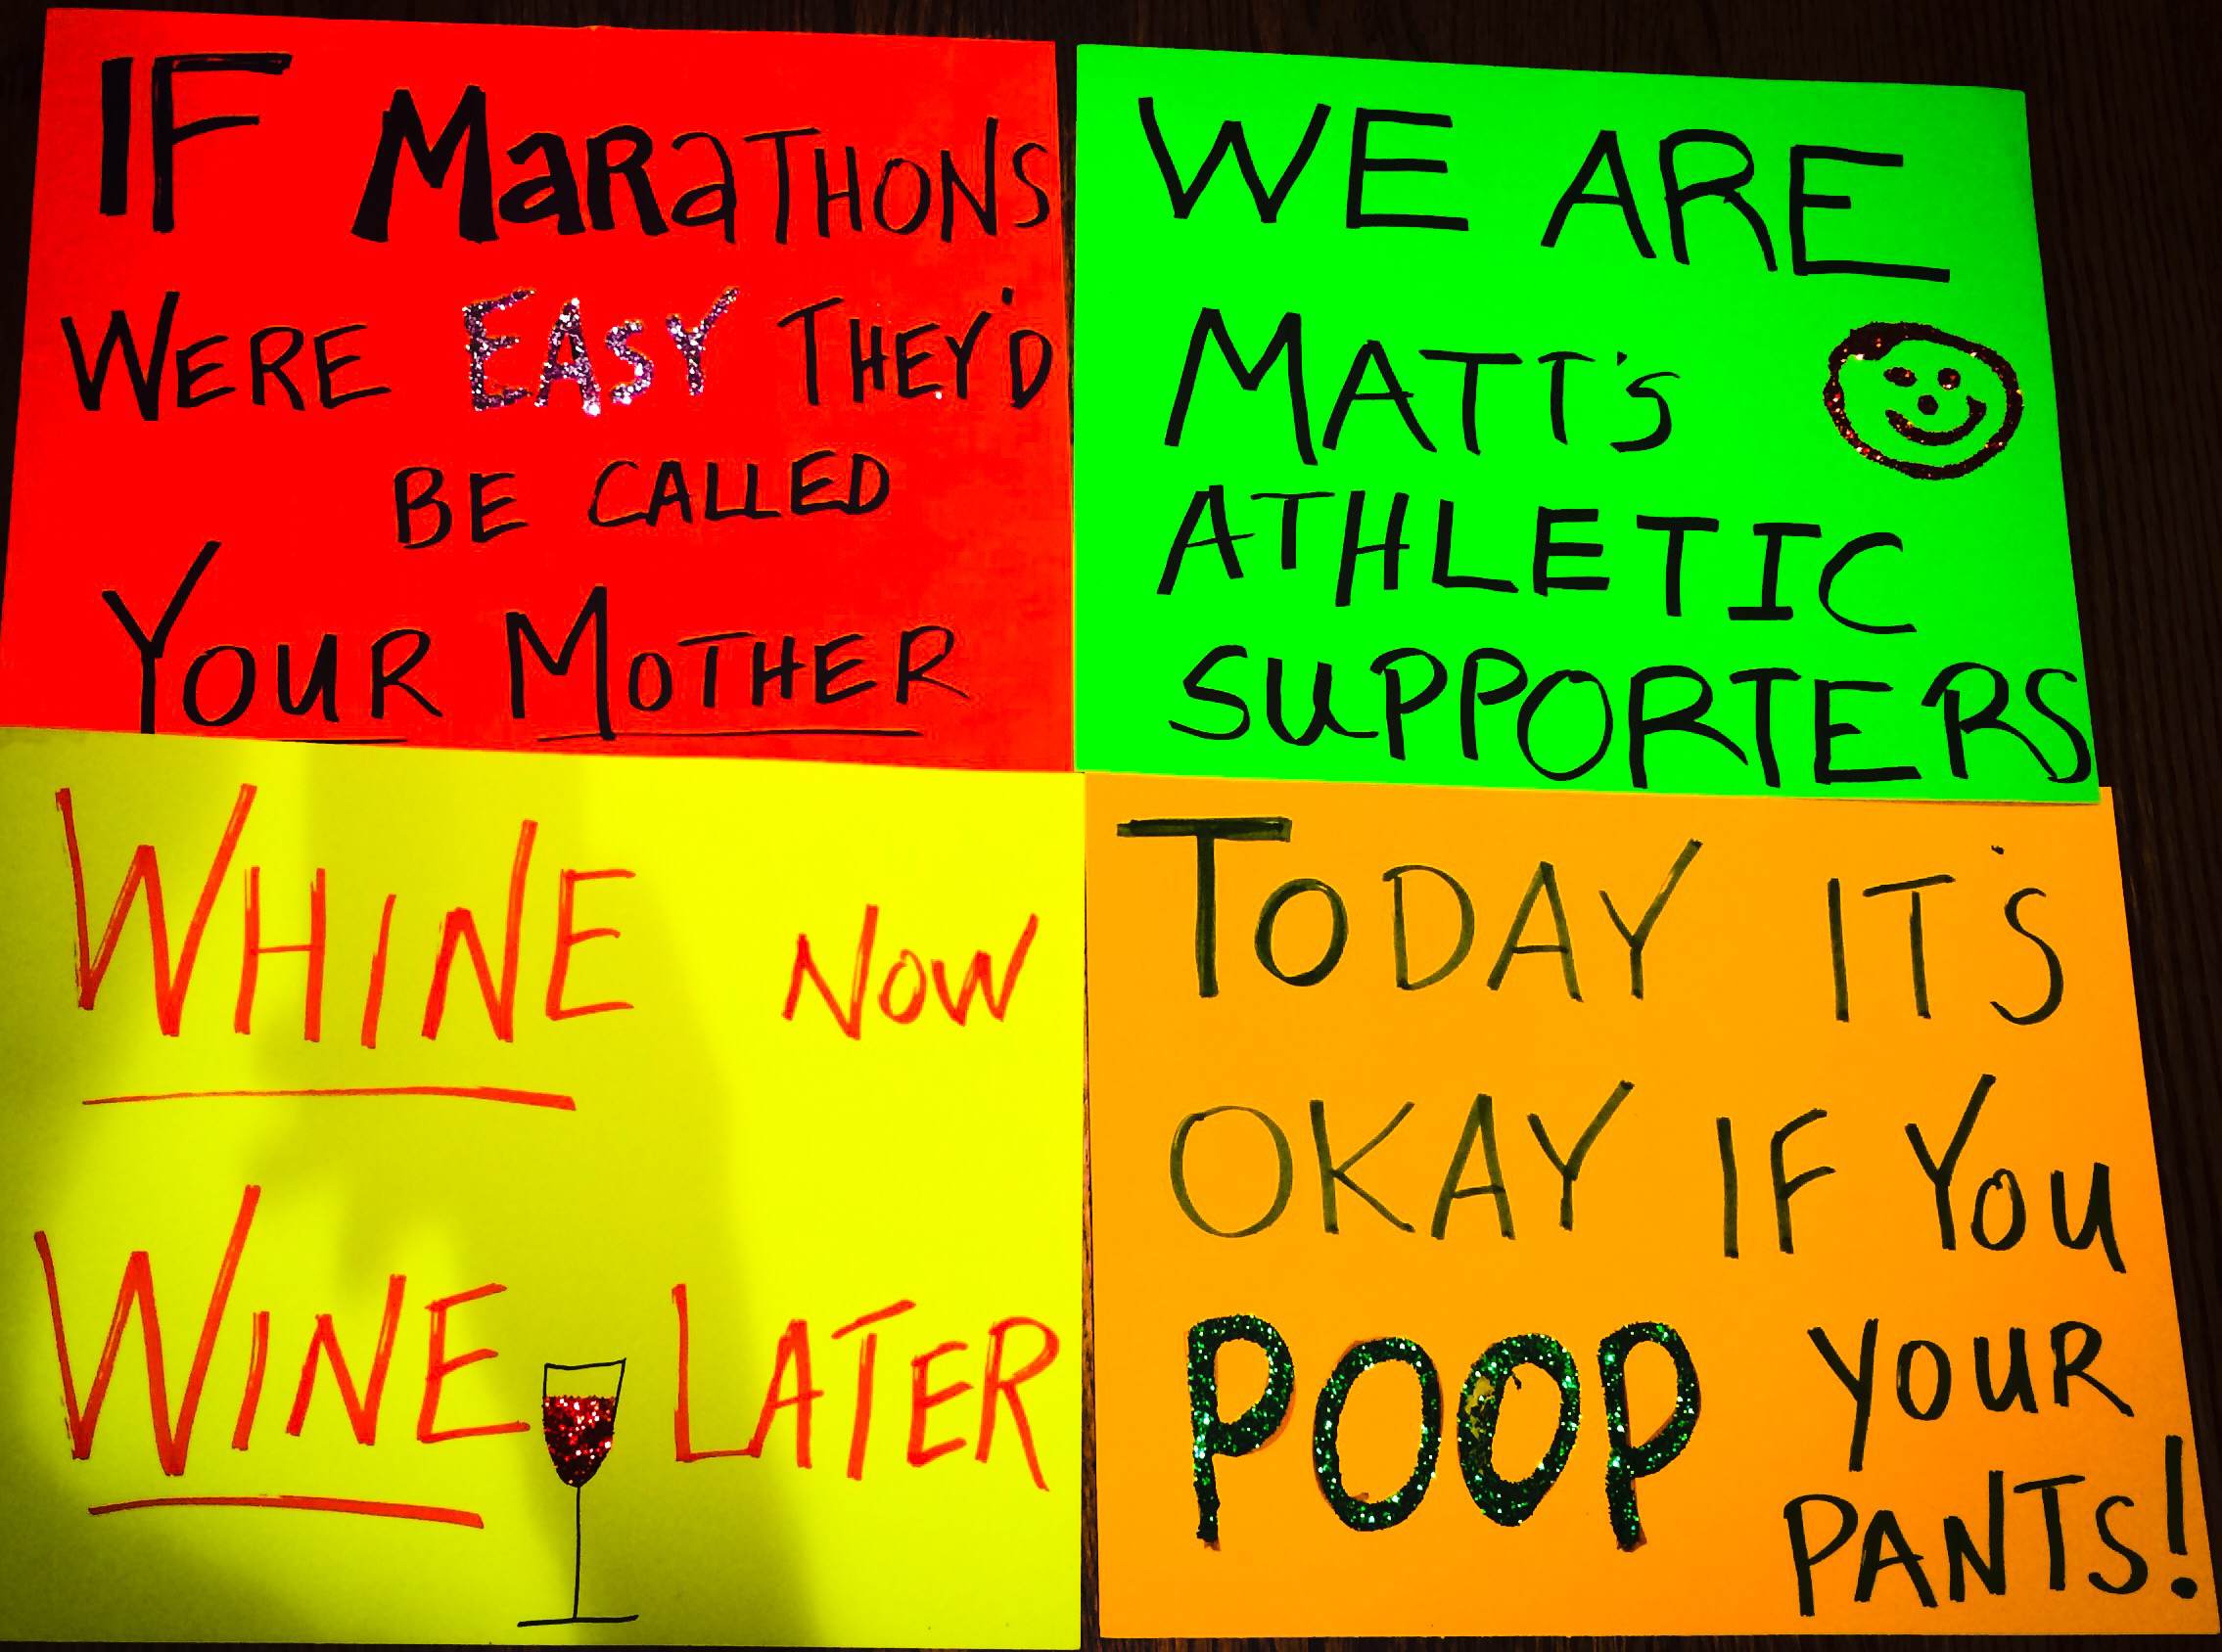 IF MaRaTHONS
WERE EASY THEY'D
BE CALLED
YOUR MOTHER
WE ARE
MATT'S
ATHLETIC
SUPPORTERS
WHINE NOW
WINE LATER
TODAY IT'S
OKAY IF YOU
POOP YOUR
PANTS!